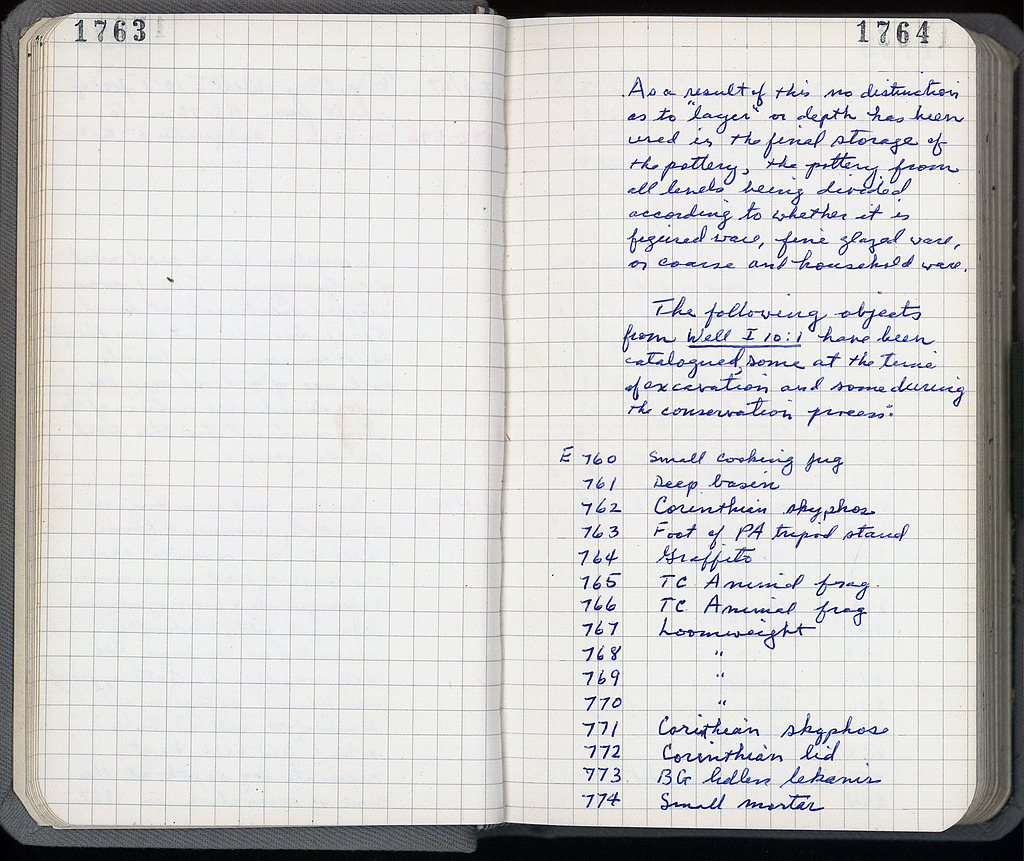 1763
1764
As a result of this no distinction
as to "layer" or depth has been
used in the final storage of
the pottery, the pottery from
all levels being divided
according to whether it is
figured ware, fine glazed ware,
or coarse and household ware.
The following objects
from Well I 10:1 have been
catalogued, some at the time
of excavation and some during
the conservation process:
E 760 Small cooking jug
761 Deep basin
762 Corinthian skyphos
763 Foot of PA tripod stand
764 Graffito
765 TC Animal frag.
766 TC Animal frag
767 Loomweight
768 "
769 "
770 "
771 Corinthian skyphos
772 Corinthian lid
773 BG hdless lekanis
774 Small mortar